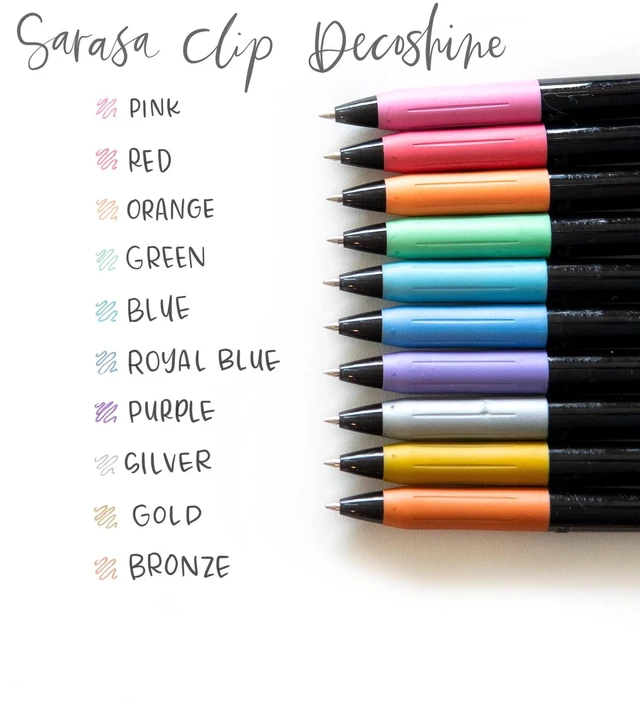 Sarasa Clip Decoshine
PINK
RED
ORANGE
GREEN
BLUE
ROYAL BLUE
PURPLE
SILVER
GOLD
BRONZE